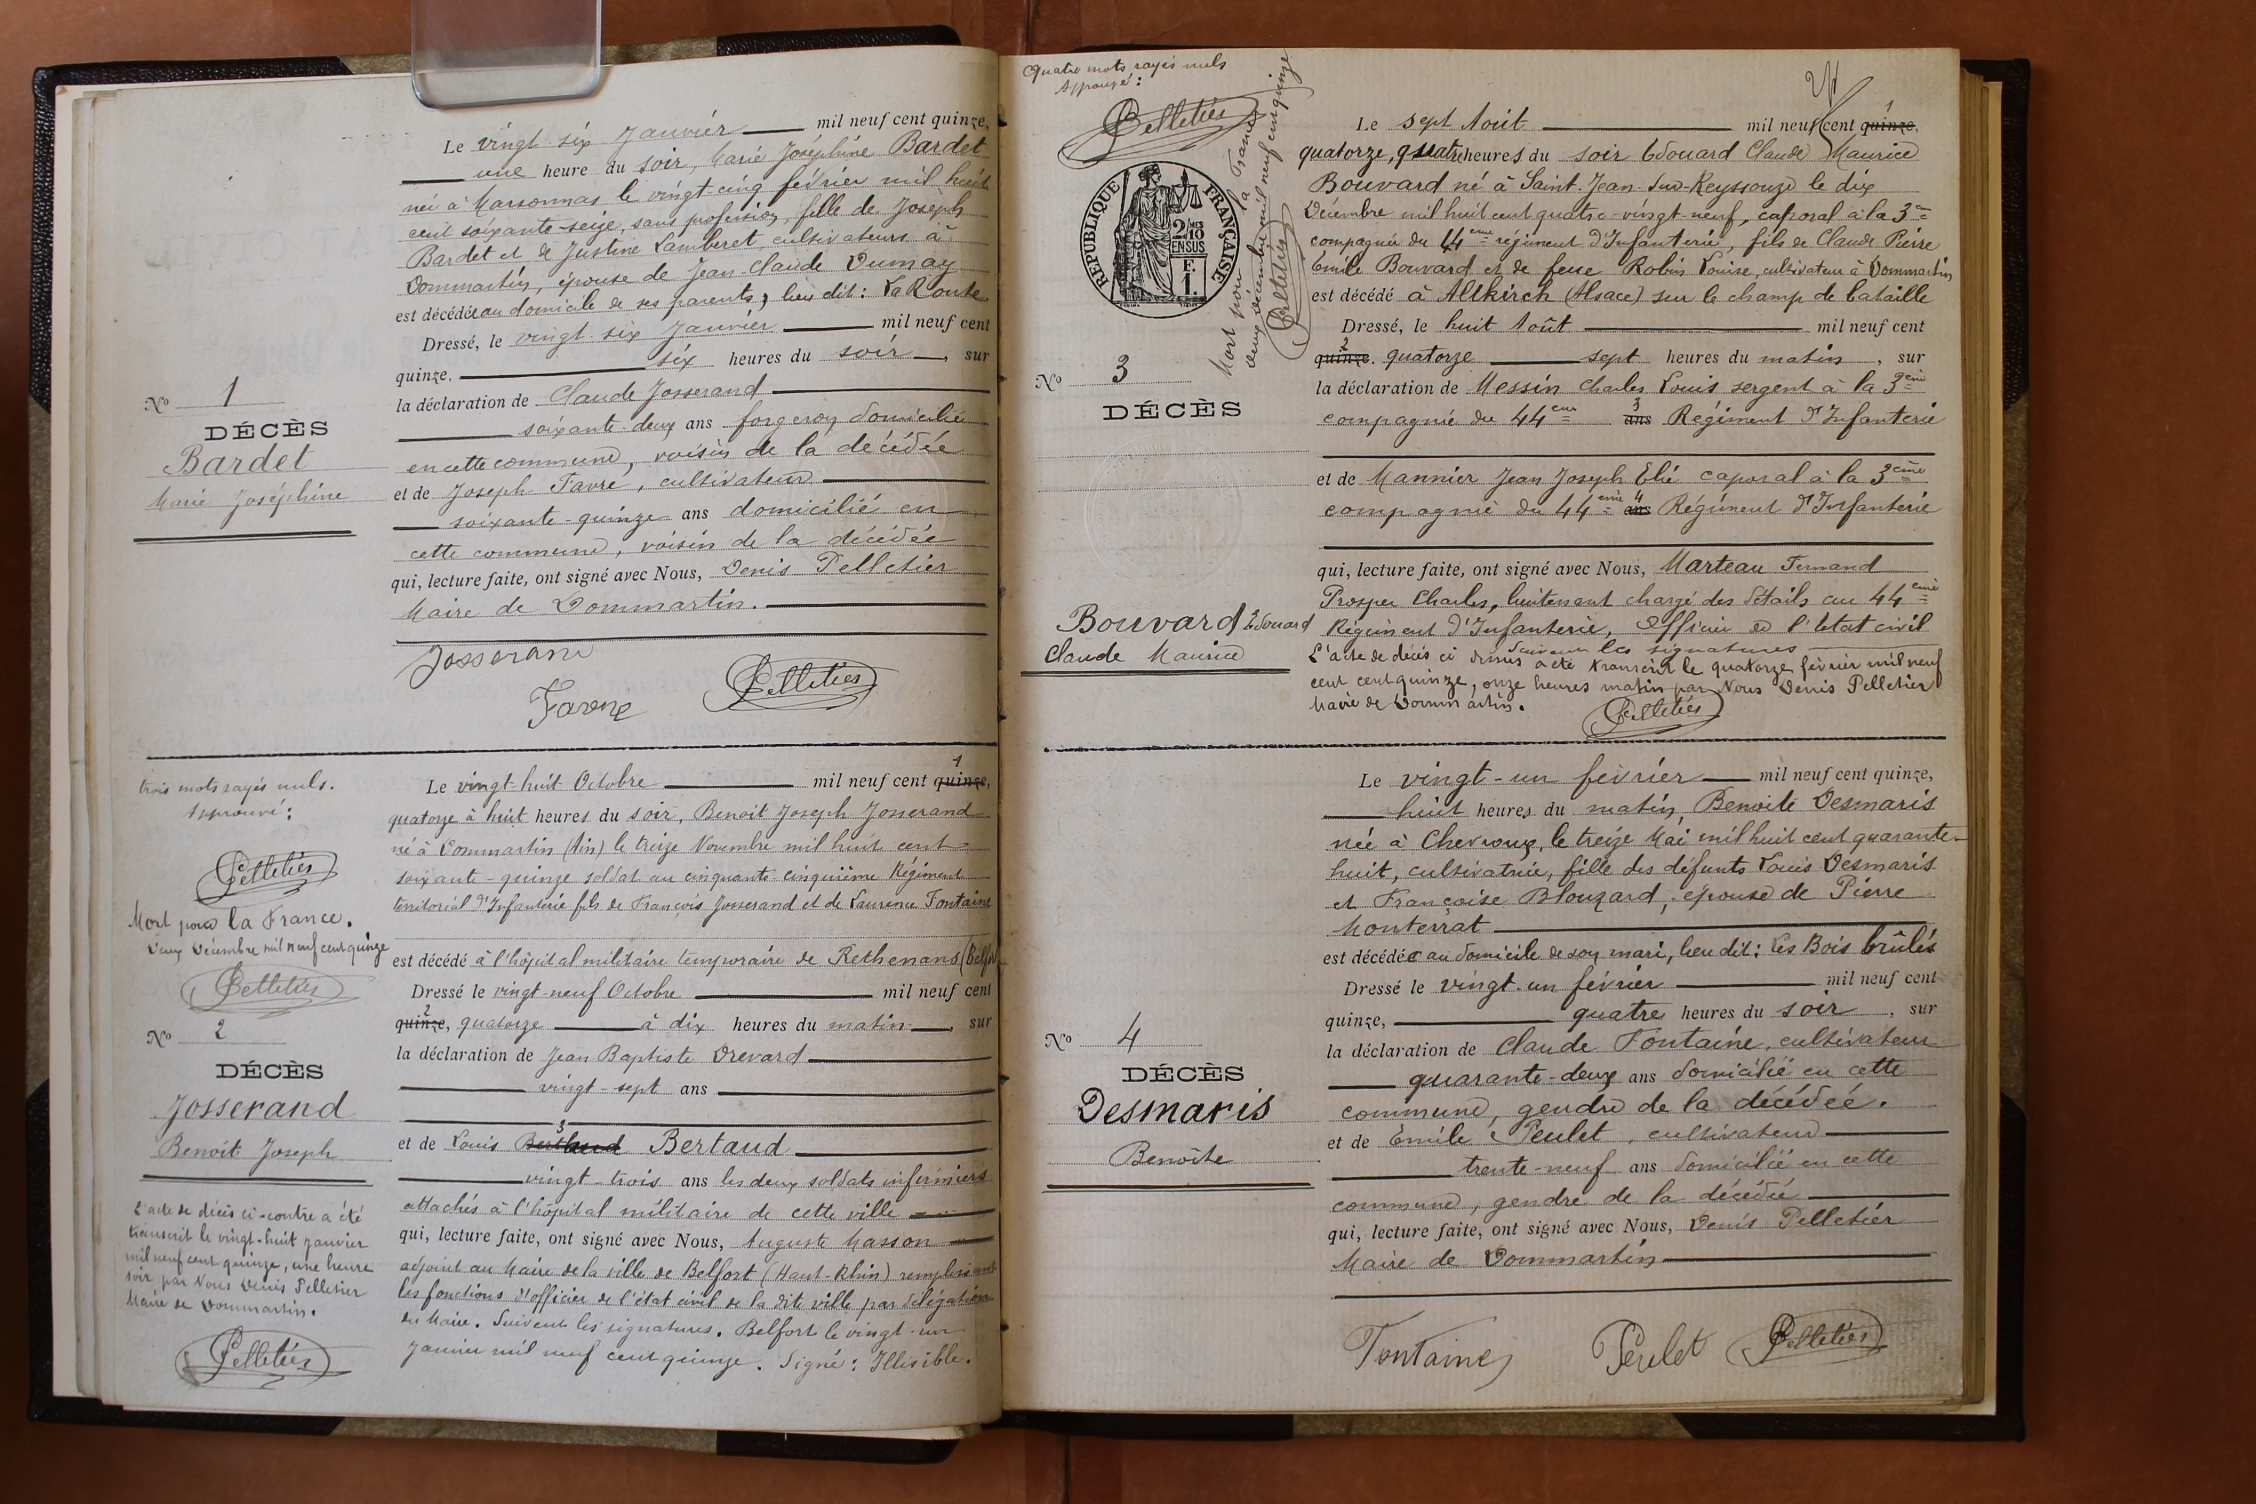 Le vingt-six Janvier mil neuf cent quinze,
une heure du soir, Marie Joséphine Bardet
née à Marsonnas le vingt-cinq février mil huit
cent soixante-seize, sans profession, fille de Joseph
Bardet et de Justine Lamberet, cultivateurs à
Dommartin, épouse de Jean-Claude Dumay
est décédée au domicile de ses parents, lieu dit: La Route
Dressé, le vingt-six Janvier mil neuf cent
quinze. six heures du soir, sur
la déclaration de Claude Josserand
soixante-deux ans forgeron domicilié
en cette commune, voisin de la décédée
et de Joseph Favre, cultivateur
soixante-quinze ans domicilié en
cette commune, voisin de la décédée
qui, lecture faite, ont signé avec Nous, Denis Pelletier
Maire de Dommartin.
Josserand
Favre
Pelletier
No 1
DÉCÈS
Bardet
Marie Joséphine
trois mots rayés nuls.
Approuvé:
Pelletier
Mort pour la France.
Deux Décembre mil neuf cent quinze
Pelletier
No 2
DÉCÈS
Josserand
Benoit Joseph
L'acte de décès ci-contre a été
transcrit le vingt-huit janvier
mil neuf cent quinze, une heure
soir, par Nous Denis Pelletier
Maire de Dommartin.
Pelletier
Le vingt-huit Octobre mil neuf cent quinze, 1
quatorze à huit heures du soir, Benoit Joseph Josserand
né à Dommartin (Ain) le treize Novembre mil huit cent
soixante-quinze soldat au cinquante-cinquième Régiment
territorial d'Infanterie fils de François Josserand et de Laurence Fontaine
est décédé à l'hôpital militaire temporaire de Rethenans (Belfort
Dressé le vingt-neuf Octobre mil neuf cent
quinze, 2 quatorze à dix heures du matin, sur
la déclaration de Jean Baptiste Drevard
vingt-sept ans
et de Louis 3 Bertaud
vingt-trois ans les deux soldats infirmiers
attachés à l'hôpital militaire de cette ville
qui, lecture faite, ont signé avec Nous, Auguste Masson
adjoint au Maire de la ville de Belfort (Haut-Rhin) remplissant
les fonctions d'officier de l'état civil de la dite ville par délégation
du Maire. Suivent les signatures. Belfort le vingt-un
Janvier mil neuf cent quinze. Signé: Illisible.
Quatre mots rayés nuls
Approuvé:
Pelletier
Mort pour la France
deux décembre mil neuf cent quinze
Pelletier
RÉPUBLIQUE FRANÇAISE
2/10MES
EN SUS
F.
1.
No 3
DÉCÈS
Bouvard Edouard
Claude Maurice
Le sept Août mil neuf cent quinze. 1
quatorze, quatre heures du soir Edouard Claude Maurice
Bouvard né à Saint-Jean-sur-Reyssouze le dix
Décembre mil huit cent quatre-vingt-neuf, caporal à la 3e
compagnie du 44eme régiment d'Infanterie, fils de Claude Pierre
Emile Bouvard et de feue Robin Louise, cultivateur à Dommartin
est décédé à Altkirch (Alsace) sur le champ de bataille
Dressé, le huit Août mil neuf cent
quinze. 2 quatorze sept heures du matin, sur
la déclaration de Messin Charles Louis sergent à la 3eme
compagnie du 44eme ans 3 Régiment d'Infanterie
et de Mannier Jean Joseph Elie caporal à la 3eme
compagnie du 44eme ans 4 Régiment d'Infanterie
qui, lecture faite, ont signé avec Nous, Marteau Fernand
Prosper Charles, lieutenant chargé des détails au 44eme
Régiment d'Infanterie, Officier de l'état civil
Suivent les signatures
L'acte de décès ci dessus a été transcrit le quatorze février mil neuf
cent cent quinze, onze heures matin par Nous Denis Pelletier
Maire de Dommartin.
Pelletier
No 4
DÉCÈS
Desmaris
Benoîte
Le vingt-un février mil neuf cent quinze,
huit heures du matin, Benoite Desmaris
née à Chevroux, le treize Mai mil huit cent quarante-
huit, cultivatrice, fille des défunts Louis Desmaris
et Françoise Blouzard, épouse de Pierre
Monterrat
est décédée au domicile de son mari, lieu dit: Les Bois brûlés
Dressé le vingt-un février mil neuf cent
quinze, quatre heures du soir, sur
la déclaration de Claude Fontaine, cultivateur
quarante-deux ans domicilié en cette
commune, gendre de la décédée.
et de Emile Peulet, cultivateur
trente-neuf ans domicilié en cette
commune, gendre de la décédée
qui, lecture faite, ont signé avec Nous, Denis Pelletier
Maire de Dommartin
Fontaine
Peulet
Pelletier